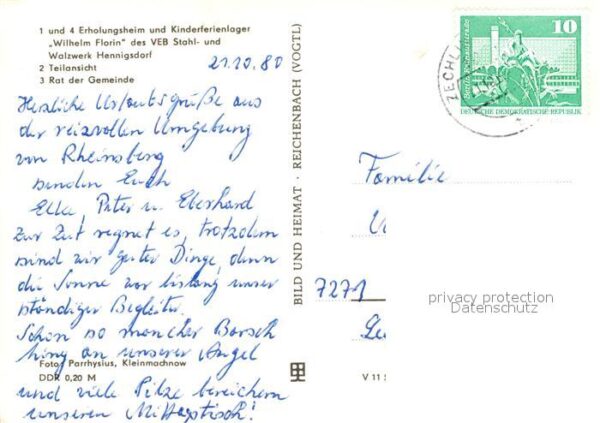 1 und 4 Erholungsheim und Kinderferienlager
„Wilhelm Florin" des VEB Stahl- und
Walzwerk Hennigsdorf
2 Teilansicht
3 Rat der Gemeinde
21.10.80
Herzliche Urlaubsgrüße aus
der reizvollen Umgebung
von Rheinsberg
senden Euch
Elke, Peter u. Eberhard
Zur Zeit regnet es, trotzdem
sind wir guter Dinge, denn
die Sonne war bislang unser
ständiger Begleiter.
Schon so mancher Barsch
hing an unserer Angel
und viele Pilze bereichern
unseren Mittagstisch!
Foto: Parrhysius, Kleinmachnow
DDR 0,20 M
BILD UND HEIMAT · REICHENBACH (VOGTL)
V 11
10
DEUTSCHE DEMOKRATISCHE REPUBLIK
ZECHLIN
Familie
7271
privacy protection
Datenschutz